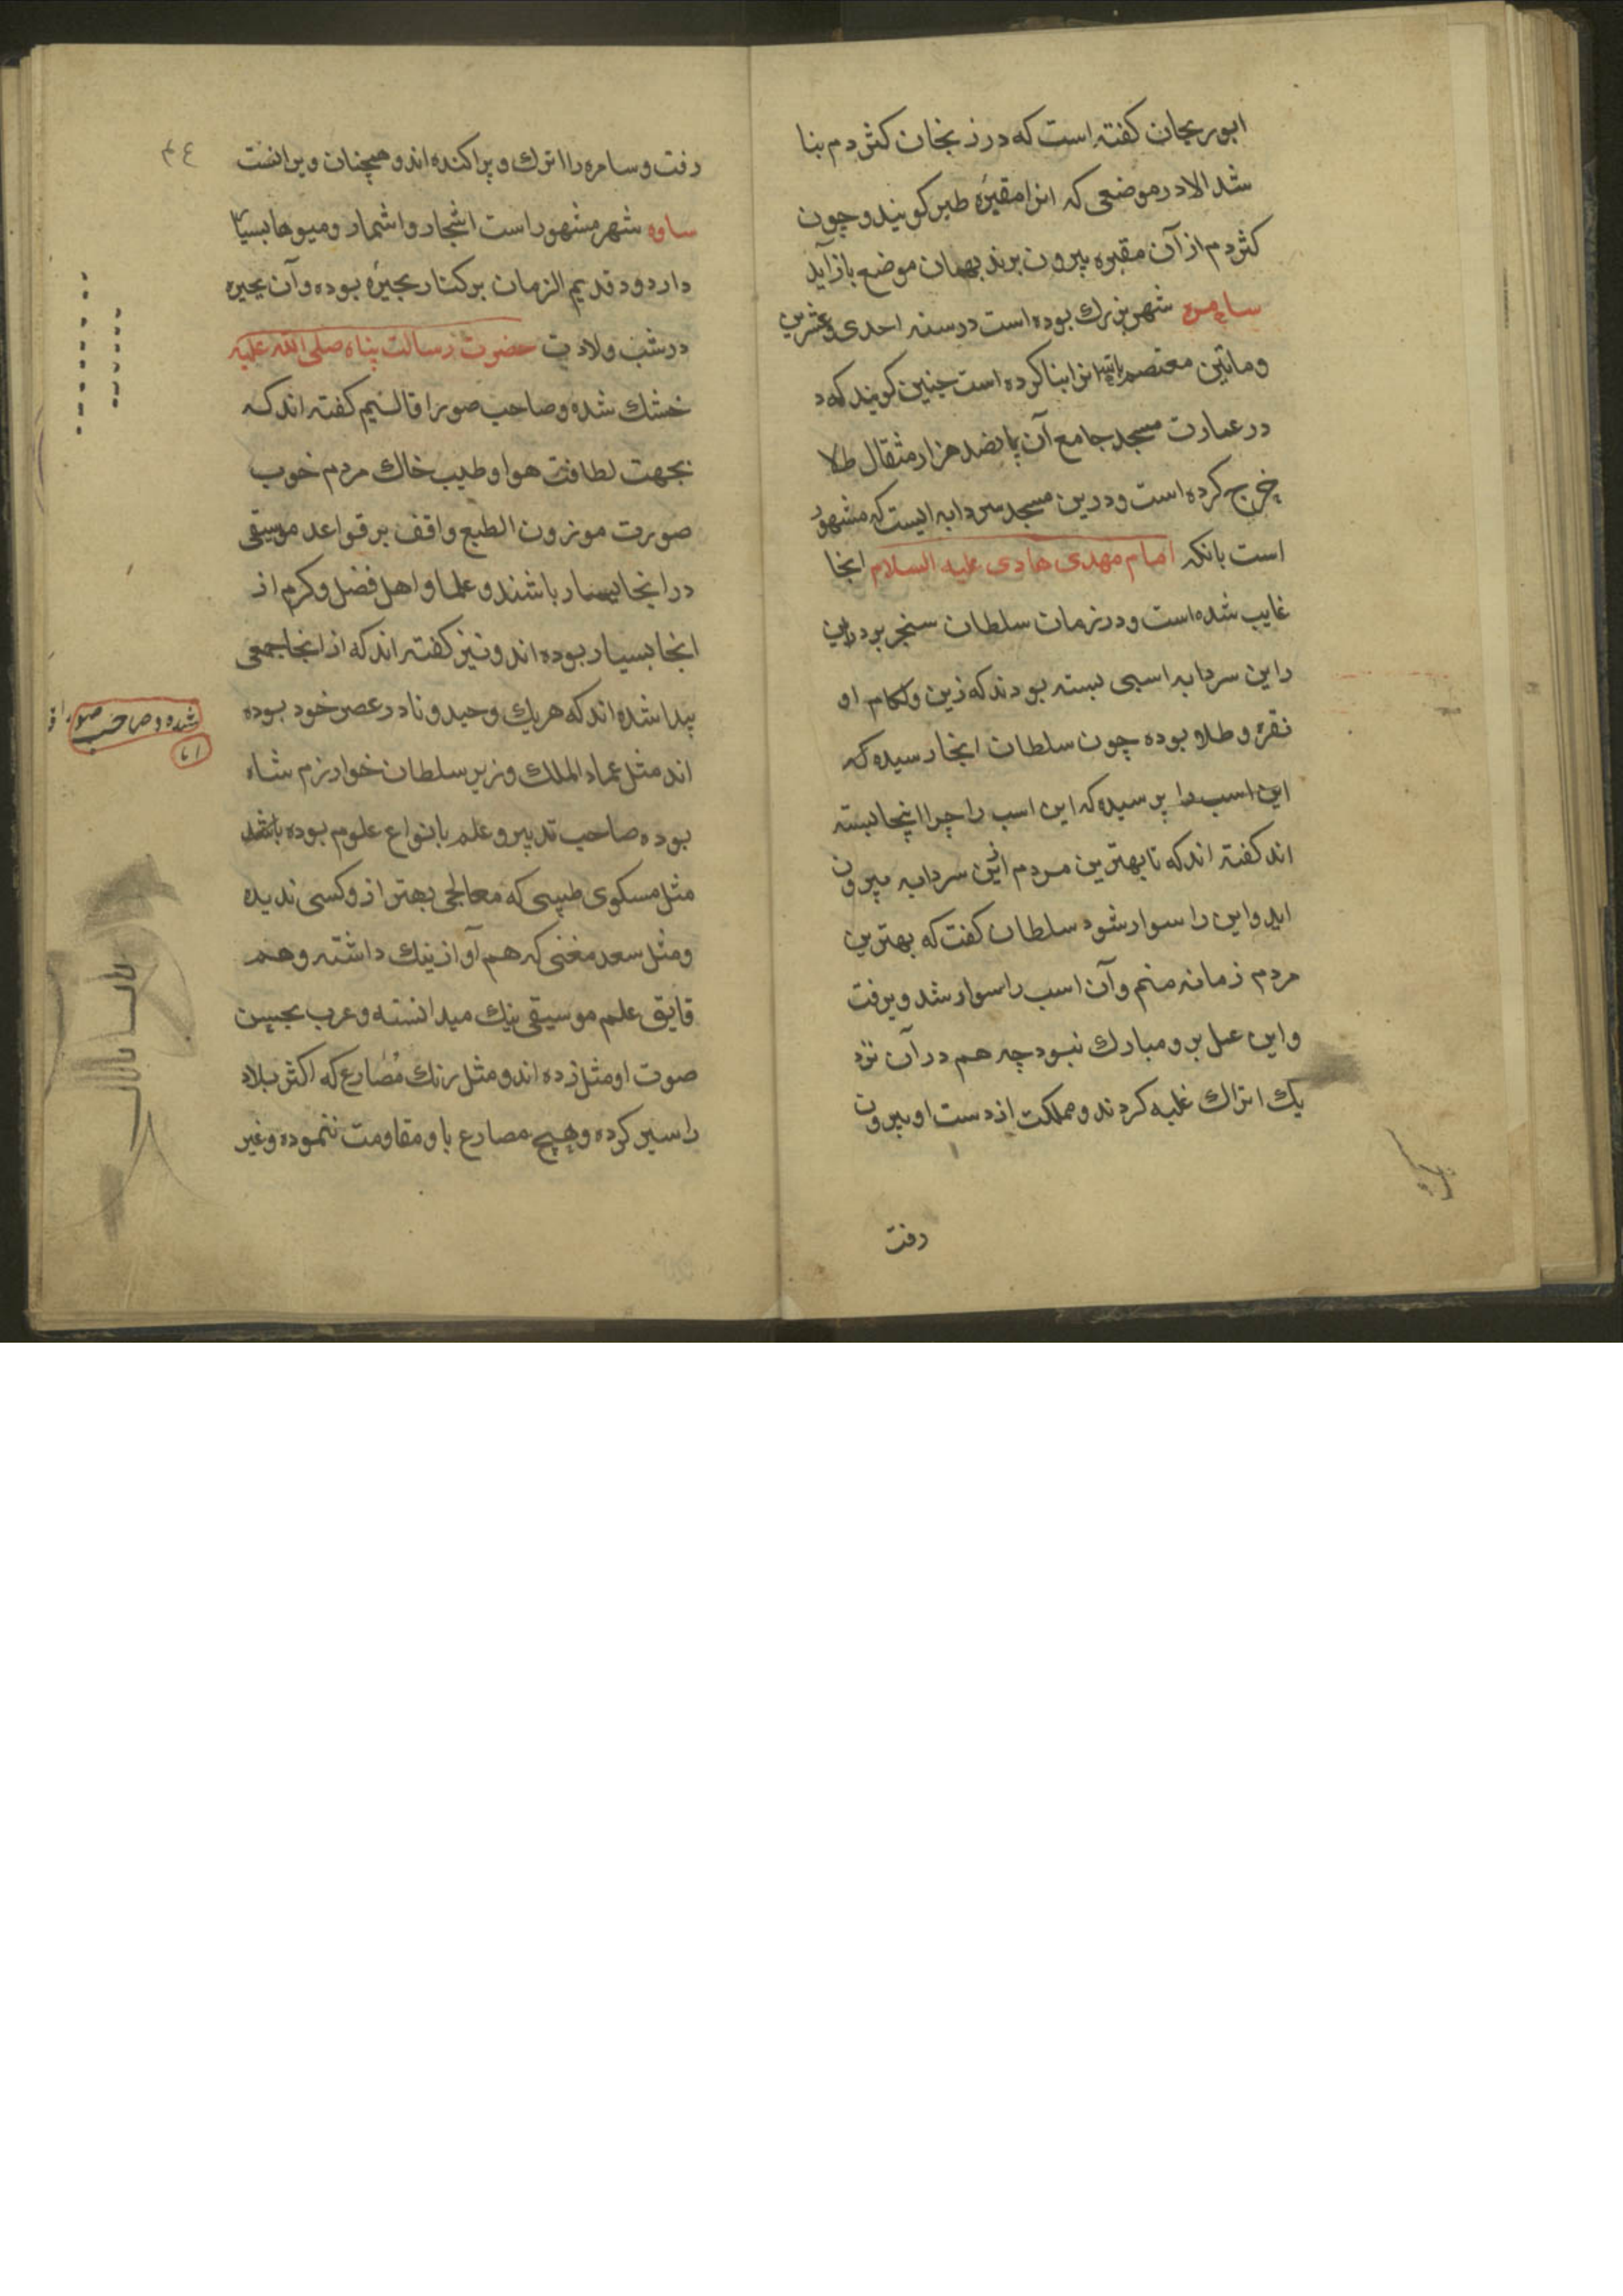 ابوریحان کفته است که در زنجان کثردم بنا
شد الا در موضعی که انرا مقبره طبر کویند و چون
کثردم از آن مقبره بیرون برند بهمان موضع باز آید
سامره شهر بزرك بوده است در سنه احدی و عشرین
و مائین معتصم بالله انرا بنا کرده است چنین کویند که د
در عمارت مسجد جامع آن پانصد هزار مثقال طلا
خرج کرده است و درین مسجد سردابه ایست که مشهور
است بانکه امام مهدی هادی علیه السلام انجا
غایب شده است و در زمان سلطان سنجر بر در این
راین سردابه اسبی بسته بودند که زین و لکام او
نقره و طلا بوده چون سلطان انجا رسیده که
این اسب را پرسیده که این اسب را چرا اینجا بسته
اند کفته اند که تا بهترین مردم ازین سردابه بیرون
اید و این را سوار شود سلطان کفت که بهترین
مردم زمانه منم و آن اسب را سوار شد و برفت
و این عمل برو مبارك نبود چه هم در آن نزد
یك اتراك غلبه کردند و مملکت از دست او بیرون
رفت
رفت و سامره را اترك و پراکنده اند و همچنان ویرانست
ساوه شهر مشهور است اشجار و اثمار و میوها بسیار
دارد و د قدیم الزمان بر کنار بحیره بوده و آن بحیره
در شب ولادت حضرت رسالت پناه صلی الله علیه
خشك شده و صاحب صور اقالیم کفته اند که
بجهت لطافت هوا و طیب خاك مردم خوب
صورت موزون الطبع واقف بر قواعد موسیقی
در انجا بسیار باشند و علما و اهل فضل و کرم از
انجا بسیار بوده اند و نیز کفته اند که از انجا جمعی
پیدا شده اند که هر یك وحید و نادر عصر خود بوده
اند مثل عماد الملك وزیر سلطان خوارزم شاه
بوده صاحب تدبیر و علم بانواع علوم بوده باشد
مثل مسکوی طبیبی که معالجی بهتر از و کسی ندیده
و مثل سعد مغنی که هم آواز نیك داشته و هم
قایق علم موسیقی نیك میدانسته و عرب بحسن
صوت او مثل زده اند و مثل رنك مُصارع که اکثر بلاد
را سیر کرده و هیچ مصارع با و مقاومت ننموده و غیر
شده و صاحب صور